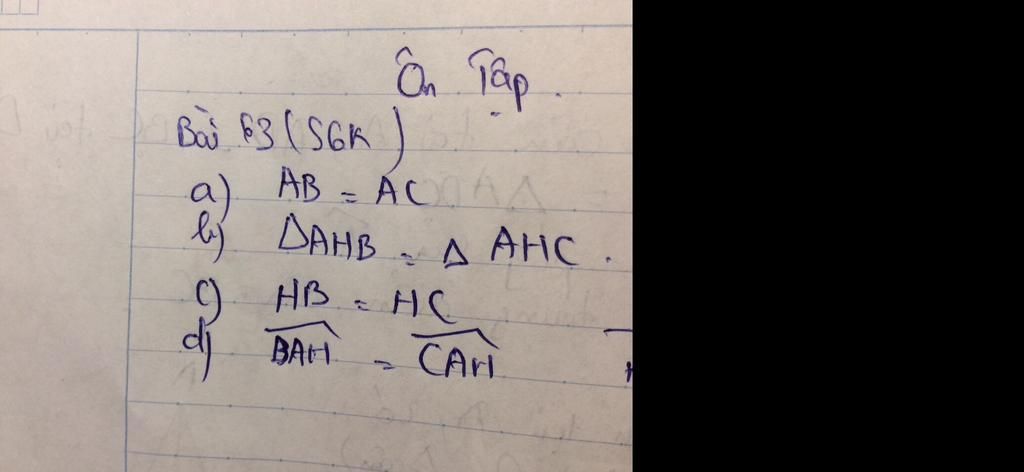 Ôn Tập.
Bài 63 (SGK)
a) AB = AC
b) ΔAHB = Δ AHC.
c) HB = HC
d) \widehat{BAH} = \widehat{CAH}